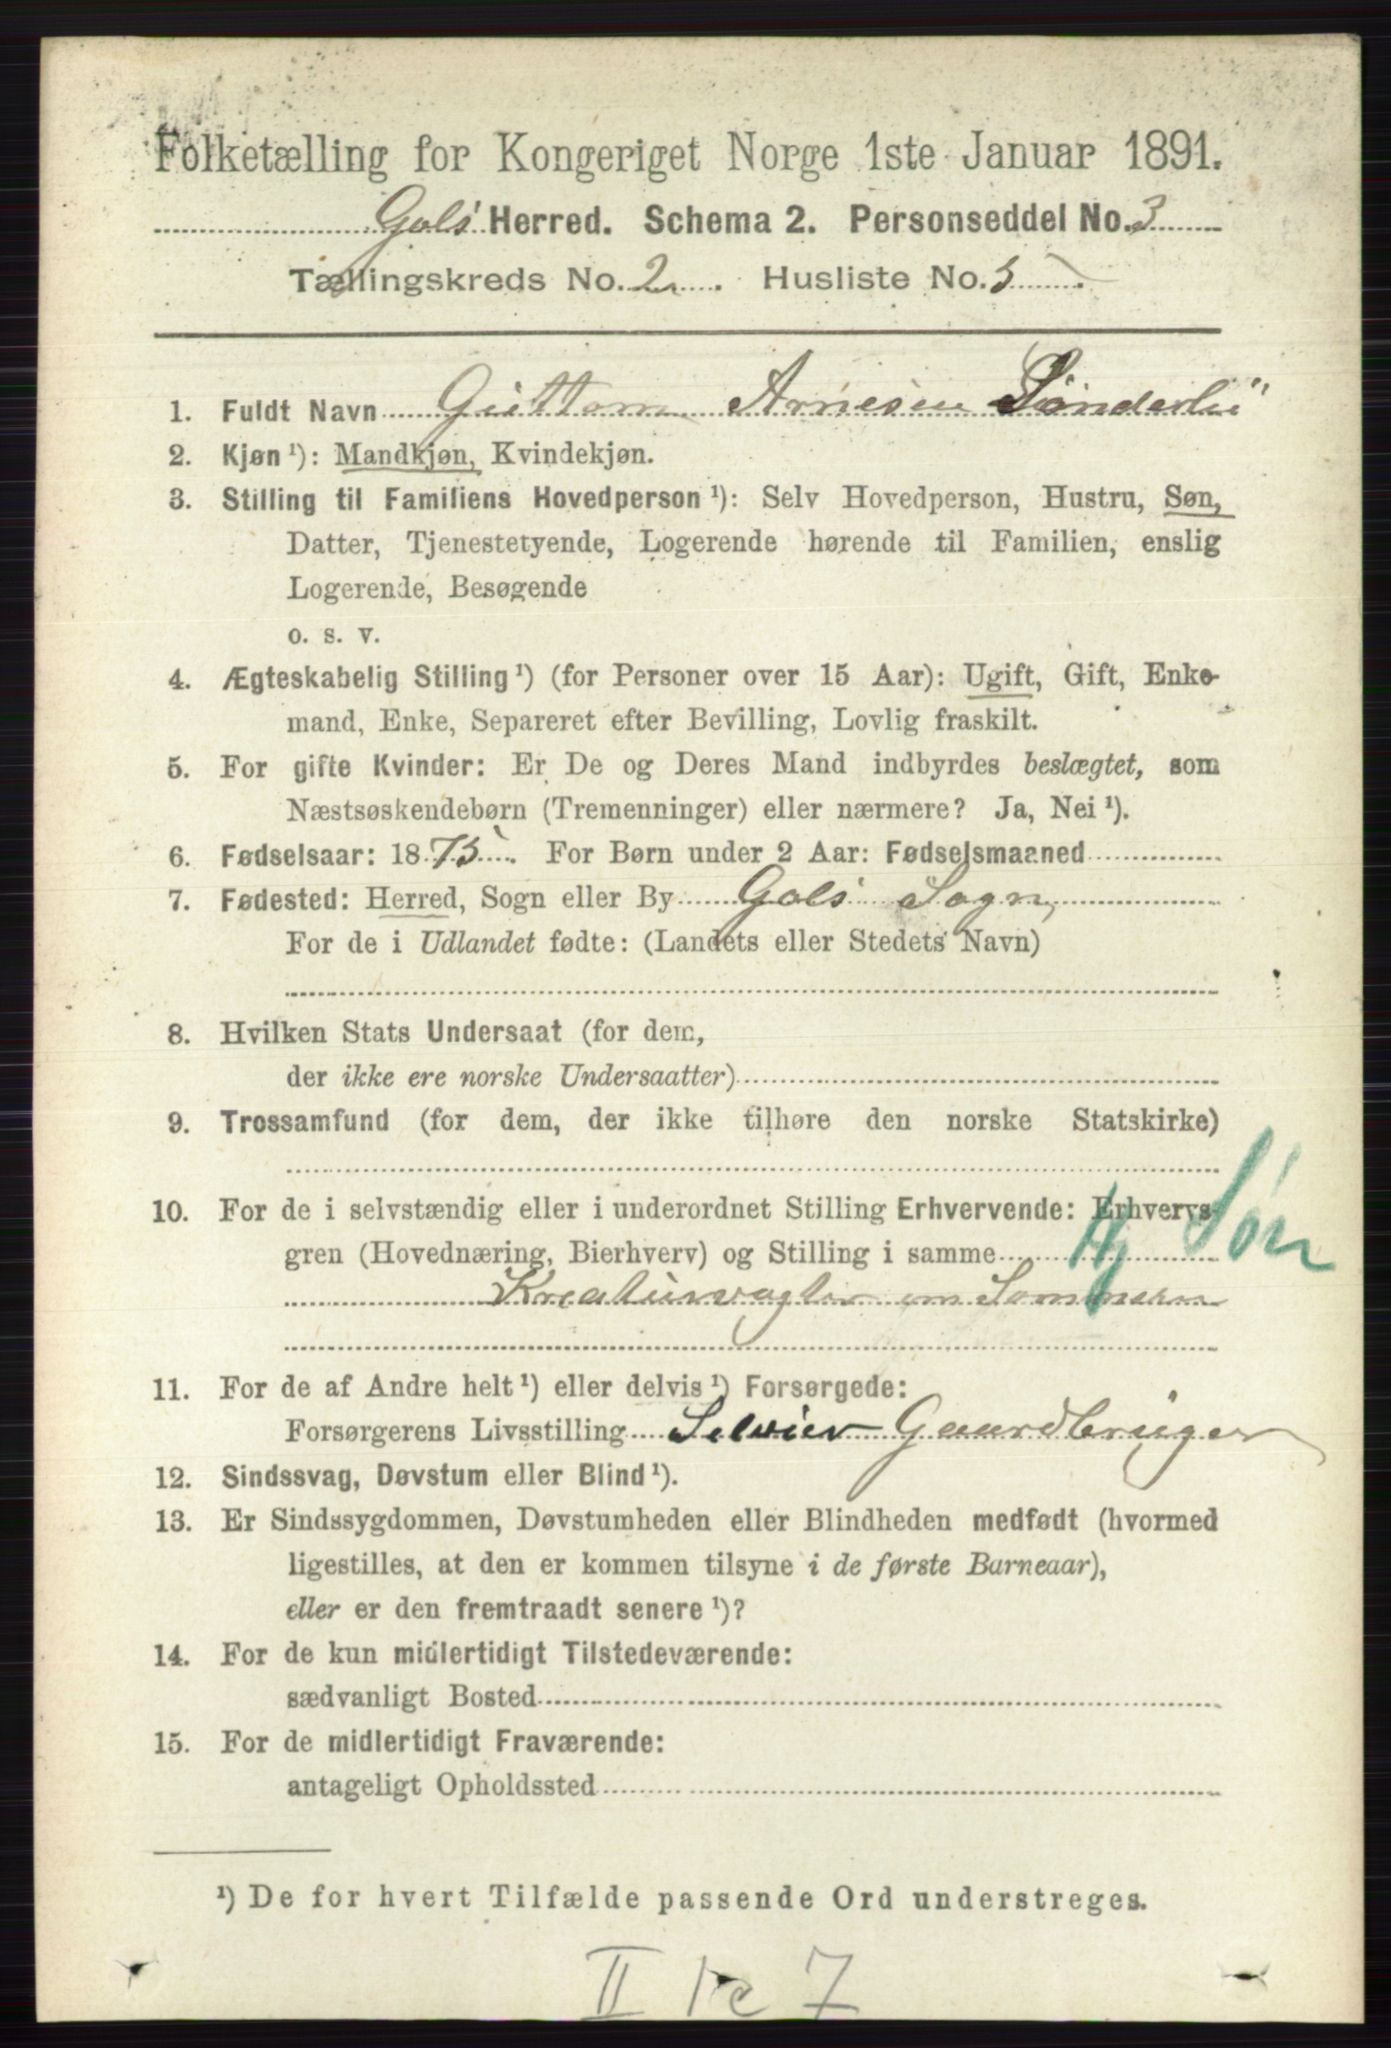 Folketælling for Kongeriget Norge 1ste Januar 1891.
Gols Herred. Schema 2. Personseddel No. 3
Tællingskreds No. 2. Husliste No. 5
1. Fuldt Navn Guttorm Arnesen Sønderlie
2. Kjøn ¹): Mandkjøn, Kvindekjøn.
3. Stilling til Familiens Hovedperson ¹): Selv Hovedperson, Hustru, Søn,
Datter, Tjenestetyende, Logerende hørende til Familien, enslig
Logerende, Besøgende
o. s. v.
4. Ægteskabelig Stilling ¹) (for Personer over 15 Aar): Ugift, Gift, Enke-
mand, Enke, Separeret efter Bevilling, Lovlig fraskilt.
5. For gifte Kvinder: Er De og Deres Mand indbyrdes beslægtet, som
Næstsøskendebørn (Tremenninger) eller nærmere? Ja, Nei ¹).
6. Fødselsaar: 1875. For Børn under 2 Aar: Fødselsmaaned
7. Fødested: Herred, Sogn eller By Gols Sogn,
For de i Udlandet fødte: (Landets eller Stedets Navn)
8. Hvilken Stats Undersaat (for dem,
der ikke ere norske Undersaatter)
9. Trossamfund (for dem, der ikke tilhøre den norske Statskirke)
10. For de i selvstændig eller i underordnet Stilling Erhvervende: Erhvervs-
gren (Hovednæring, Bierhverv) og Stilling i samme Søn
Kreaturvogter om Sommeren
11. For de af Andre helt ¹) eller delvis ¹) Forsørgede:
Forsørgerens Livsstilling Selveier Gaardbruger
12. Sindssvag, Døvstum eller Blind ¹).
13. Er Sindssygdommen, Døvstumheden eller Blindheden medfødt (hvormed
ligestilles, at den er kommen tilsyne i de første Barneaar),
eller er den fremtraadt senere ¹)?
14. For de kun midlertidigt Tilstedeværende:
sædvanligt Bosted
15. For de midlertidigt Fraværende:
antageligt Opholdssted
¹) De for hvert Tilfælde passende Ord understreges.
II 1c 7